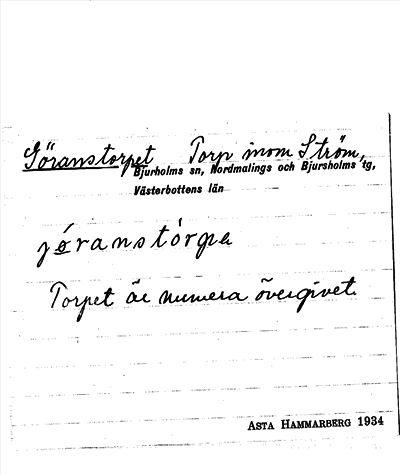 Göranstorpet Torp inom Ström,
Bjurholms sn, Nordmalings och Bjursholms tg,
Västerbottens län
jǿranstórpa
Torpet är numera övergivet.
ASTA HAMMARBERG 1934